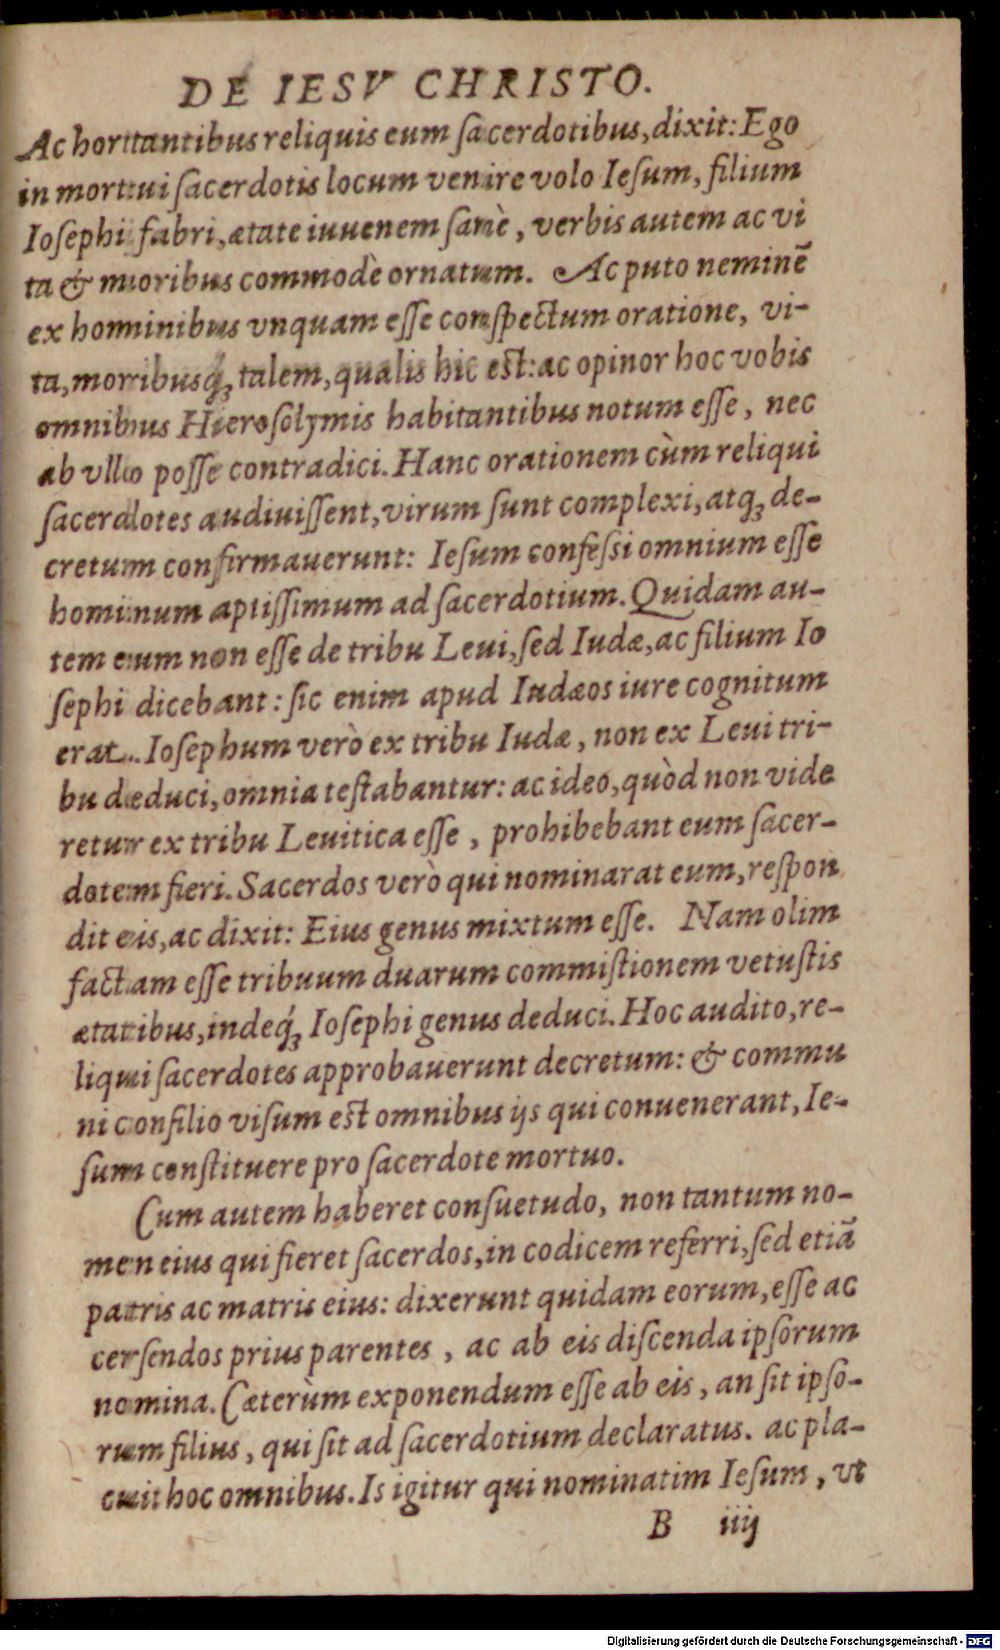 DE IESV CHRISTO.
Ac hortantibus reliquis eum sacerdotibus, dixit: Ego
in mortui sacerdotis locum venire volo Iesum, filium
Iosephi fabri, ætate iuuenem sanè, verbis autem ac vi
ta & moribus commodè ornatum. Ac puto neminē
ex hominibus vnquam esse conspectum oratione, vi-
ta, moribusq́ꝫ talem, qualis hic est: ac opinor hoc vobis
omnibus Hierosolymis habitantibus notum esse, nec
ab vllo posse contradici. Hanc orationem cùm reliqui
sacerdotes audiuissent, virum sunt complexi, atqꝫ de-
cretum confirmauerunt: Iesum confessi omnium esse
hominum aptissimum ad sacerdotium. Quidam au-
tem eum non esse de tribu Leui, sed Iudæ, ac filium Io
sephi dicebant: sic enim apud Iudæos iure cognitum
erat. Iosephum verò ex tribu Iudæ, non ex Leui tri-
bu deduci, omnia testabantur: ac ideo, quòd non vide
retur ex tribu Leuitica esse, prohibebant eum sacer-
dotem fieri. Sacerdos verò qui nominarat eum, respon
dit eis, ac dixit: Eius genus mixtum esse. Nam olim
factam esse tribuum duarum commistionem vetustis
ætatibus, indeq́ꝫ Iosephi genus deduci. Hoc audito, re-
liqui sacerdotes approbauerunt decretum: & commu
ni consilio visum est omnibus ijs qui conuenerant, Ie-
sum constituere pro sacerdote mortuo.
Cum autem haberet consuetudo, non tantum no-
men eius qui fieret sacerdos, in codicem referri, sed etiā
patris ac matris eius: dixerunt quidam eorum, esse ac
cersendos prius parentes, ac ab eis discenda ipsorum
nomina. Cæterùm exponendum esse ab eis, an sit ipso-
rum filius, qui sit ad sacerdotium declaratus. ac pla-
cuit hoc omnibus. Is igitur qui nominatim Iesum, vt
B iiij
Digitalisierung gefördert durch die Deutsche Forschungsgemeinschaft - DFG